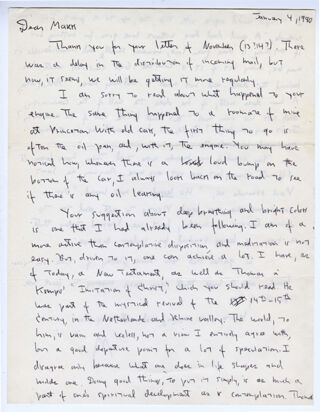 January 4, 1980
Dear Mark
Thank you for your letter of November (13?14?). There
was a delay in the distribution of incoming mail, but
now, it seems, we will be getting it more regularly.
I am sorry to read about what happened to your
engine. The same thing happened to a roommate of mine
at Princeton. With old cars, the first thing to go is
often the oil pan, and, with it, the engine. You may have
noticed how, whenever there is a loud bump on the
bottom of the car, I always look back on the road to see
if there is any oil leaking.
Your suggestion about deep breathing and bright colors
is one that I had already been following. I am of a
more active than contemplative disposition and meditation is not
easy. But, driven to it, one can achieve a lot. I have, as
of today, a New Testament, as well as Thomas a
Kempis' "Imitation of Christ," which you should read. He
was part of the mystical revival of the 14th-15th
century, in the Netherlands and Rhine valley. The world, to
him, is vain and useless, not a view I entirely agree with,
but a good departure point for a lot of speculation. I
disagree only because what one does in life shapes and
molds one. Doing good things, to put it simply, is as much a
part of one's spiritual development as is contemplation.